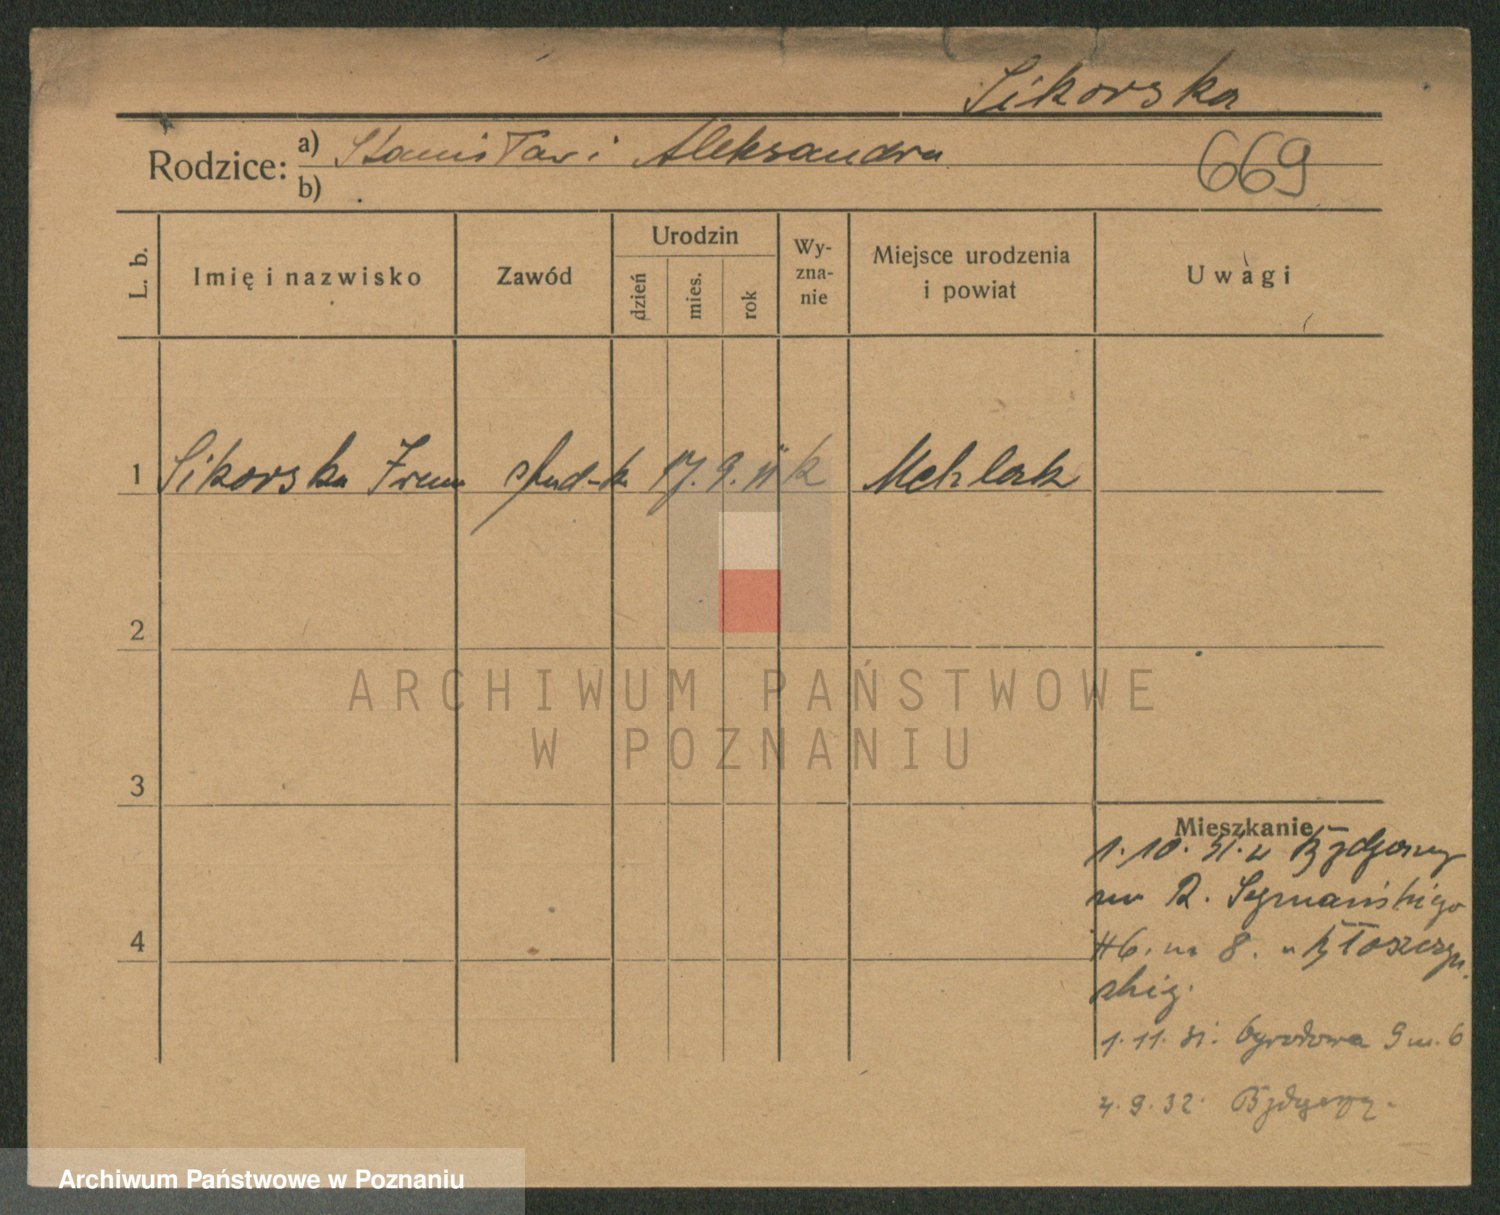 Sikorska
Rodzice: a) Stanisław i Aleksandra
b)
669
L. b.
Imię i nazwisko
Zawód
Urodzin
dzień
mies.
rok
Wy-
zna-
nie
Miejsce urodzenia
i powiat
Uwagi
1 Sikorska Irena stud-k. 17. 9. 11 k
2
3
4
ARCHIWUM PAŃSTWOWE
W POZNANIU
Mieszkanie
1. 10. 31. z Bydgoszczy
R.
46. m 8. u
skiej.
1. 11. 31. Ogrodowa 9 m. 6
9. 32. Bydgoszcz.
Archiwum Państwowe w Poznaniu